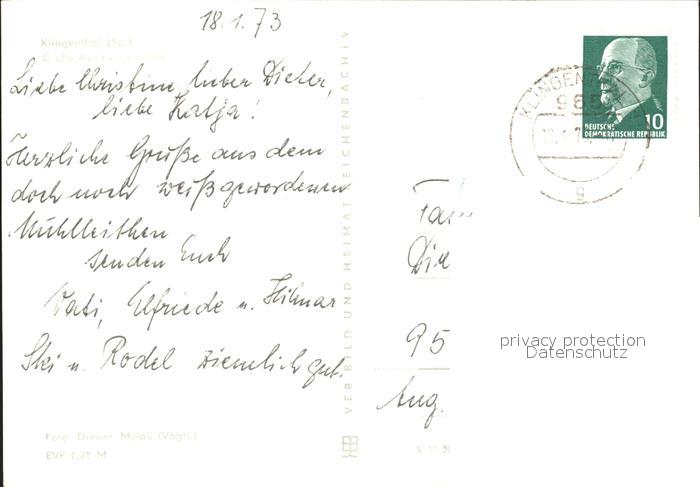 18.1.73
Klingenthal (Sa.)
Große
Liebe Christine, lieber Dieter,
liebe Katja!
Herzliche Grüße aus dem
doch noch weißgewordenen
Mühlleithen
senden Euch
Vati, Elfriede u. Hilmar
Ski u. Rodel ziemlich gut.
Foto: Diener Mylau (Vogtl.)
EVP 0,25 M
VEB BILD UND HEIMAT REICHENBACH i. V
KLINGENTHAL
965
g
10
DEUTSCHE
DEMOKRATISCHE REPUBLIK
Fam
Die
95
Aug.
privacy protection
Datenschutz